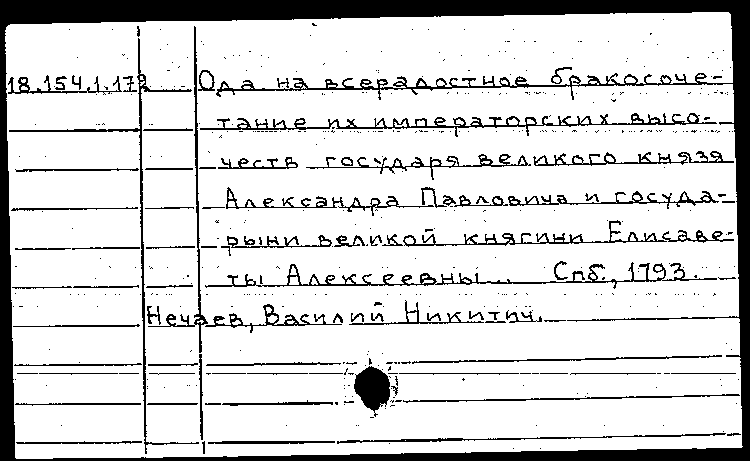 18.154.1.172 Ода на всерадостное бракосоче-
тание их императорских высо-
честв государя великого князя
Александра Павловича и госуда-
рыни великой княгини Елисаве-
ты Алексеевны... Спб., 1793.
Нечаев, Василий Никитич.